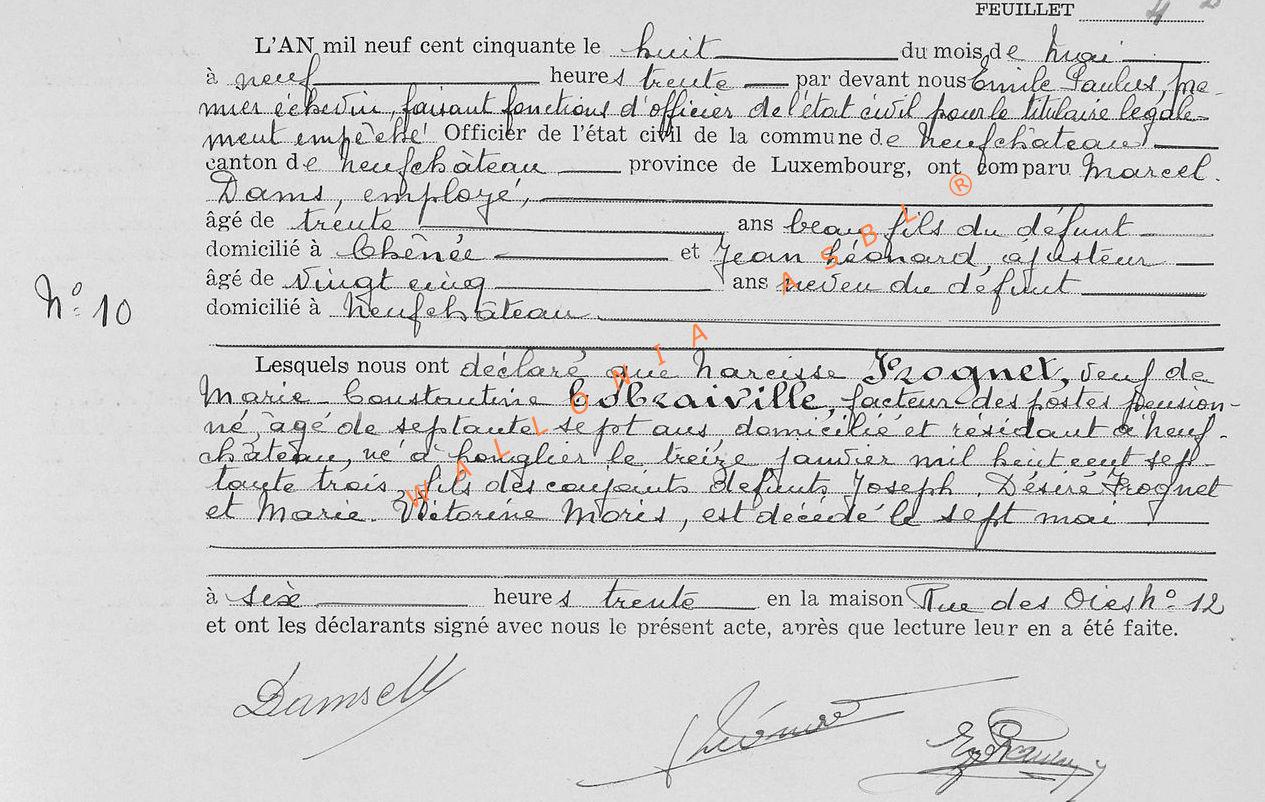 FEUILLET 4
L'AN mil neuf cent cinquante le huit du mois de Mai
à neuf heures trente par devant nous Emile Paulus, pre-
mier échevin, faisant fonctions d'officier de l'état civil pour le titulaire légale-
ment empêché Officier de l'état civil de la commune de Neufchâteau
canton de Neufchâteau province de Luxembourg, ont comparu Marcel
Dams, employé,
âgé de trente ans beau fils du défunt
domicilié à Chênée et Jean Léonard, ajusteur
âgé de vingt cinq ans neveu du défunt
N° 10
domicilié à Neufchâteau
Lesquels nous ont déclaré que Narcisse Frognet, veuf de
Marie-Constantine Collraiville, facteur des postes pension-
né, âgé de septante sept ans, domicilié et résidant à Neuf-
château, né à Longlier le treize janvier mil huit cent sep-
tante trois, fils des conjoints défunts Joseph. Désiré Frognet
et Marie. Victorine Moris, est décédé le sept mai
à six heures trente en la maison Rue des Oies N° 12
et ont les déclarants signé avec nous le présent acte, après que lecture leur en a été faite.
Dams
Léonard
WALLONIA ASBL ®